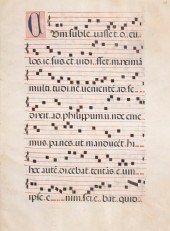 Cum suble vasset o cu
los ie sus et vidisset maximã
multitudinẽ venientẽ ad se
dixit ad philippum unde eme
mus panes ut manducẽt hi
hoc autẽ dicebat temtãs eum
ipse e nim sci e bat quid